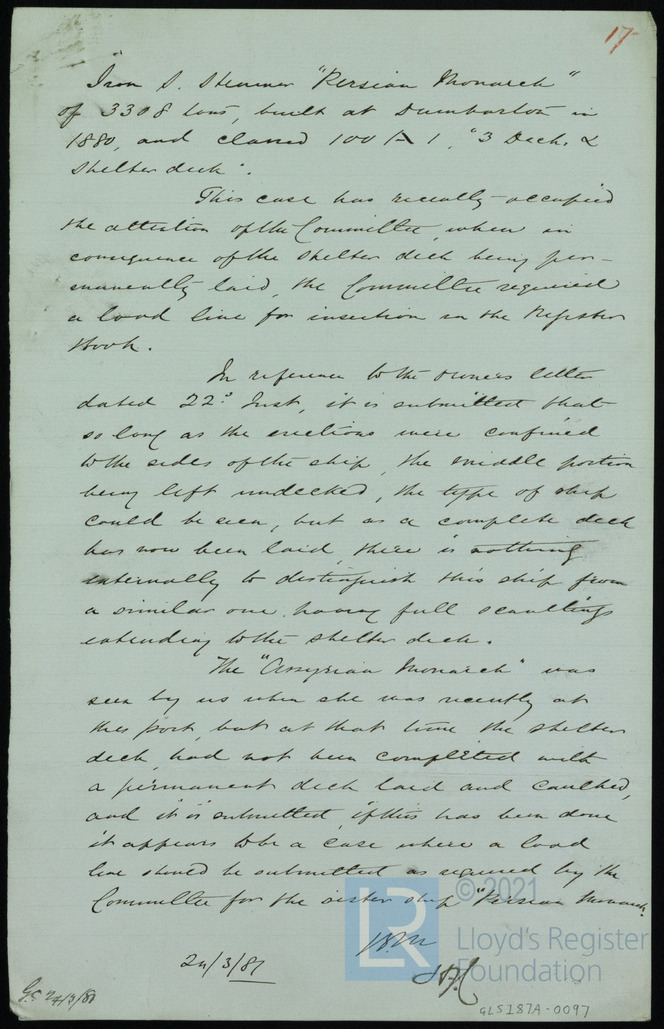 17
Iron S. Steamer "Persian Monarch"
of 3308 tons, built at Dumbarton in
1880, and classed 100 A 1, "3 Decks &
Shelter deck".
This case has recently occupied
the attention of the Committee, when in
consequence of the shelter deck being per-
manently laid, the Committee required
a load line for insertion in the Register
Book.
In reference to the Owners letter
dated 22d Inst, it is submitted that
so long as the erections were confined
to the sides of the ship, the middle portion
being left undecked, the type of ship
could be seen, but as a complete deck
has now been laid there is nothing
externally to distinguish this ship from
a similar one having full scantlings
extending to the shelter deck.
The "Assyrian Monarch" was
seen by us when she was recently at
this port, but at that time the shelter
deck, had not been completed with
a permanent deck laid and caulked,
and it is submitted, if this has been done
it appears to be a case where a load
line should be submitted as required by the
Committee for the sister ship "Persian Monarch.
24/3/81
24/3/81
© 2021
LR
Lloyd's Register
Foundation
GLSI87A-0097